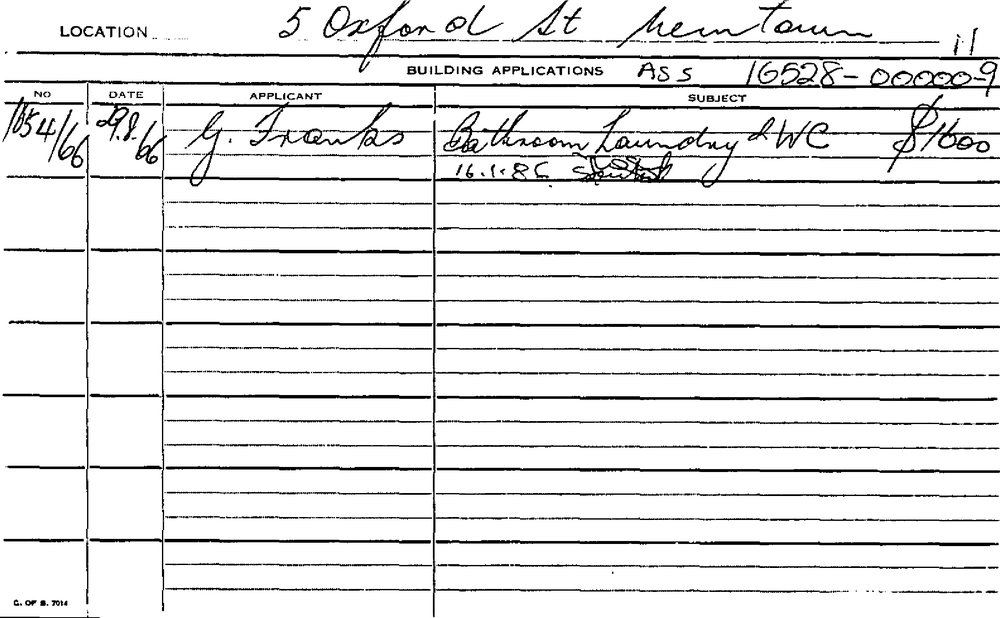 LOCATION 5 Oxford St Newtown 11
BUILDING APPLICATIONS Ass 16528-00000-9
NO DATE APPLICANT SUBJECT
1654/66 29.8.66 G. Franks Bathroom Laundry & WC $1600
16.1.86
C. OF S. 7014